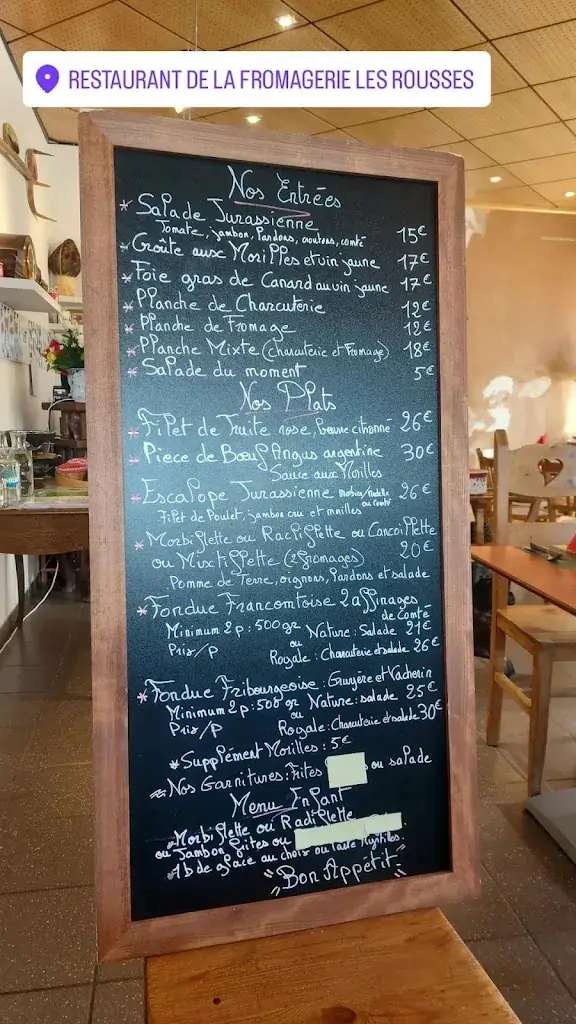 RESTAURANT DE LA FROMAGERIE LES ROUSSES
Nos Entrées
* Salade Jurassienne
Tomate, jambon, lardons, croutons, comté 15€
* Croûte aux Morilles et vin jaune 17€
* Foie gras de Canard au vin jaune 17€
* Planche de Charcuterie 12€
* Planche de Fromage 12€
* Planche Mixte (charcuterie et Fromage) 18€
* Salade du moment 5€
Nos Plats
* Filet de Truite rose, beurre citronné 26€
* Piece de Bœuf Angus argentine 30€
Sauce aux Morilles
* Escalope Jurassienne 26€
ou Comté
Filet de Poulet, jambon cru et morilles
* Morbiflette ou Racliflette ou Cancoillette
ou Mixtiflette (2 fromages) 20€
Pomme de Terre, oignons, lardons et salade
* Fondue Francomtoise 2 affinages
de Comté
Minimum 2 p : 500 gr Nature : Salade 21€
Prix/P ou
Royale : Charcuterie et salade 26€
* Fondue Fribourgeoise : Gruyère et Vacherin
Minimum 2 p : 500 gr Nature : salade 25€
Prix/P ou
Royale : Charcuterie et salade 30€
* Supplément Morilles : 5€
Nos Garnitures : Frites ou salade
Menu Enfant
* Morbiflette ou Racliflette
ou Jambon frites ou
* 1 b de glace au choix ou Tarte Myrtilles.
"Bon Appétit"